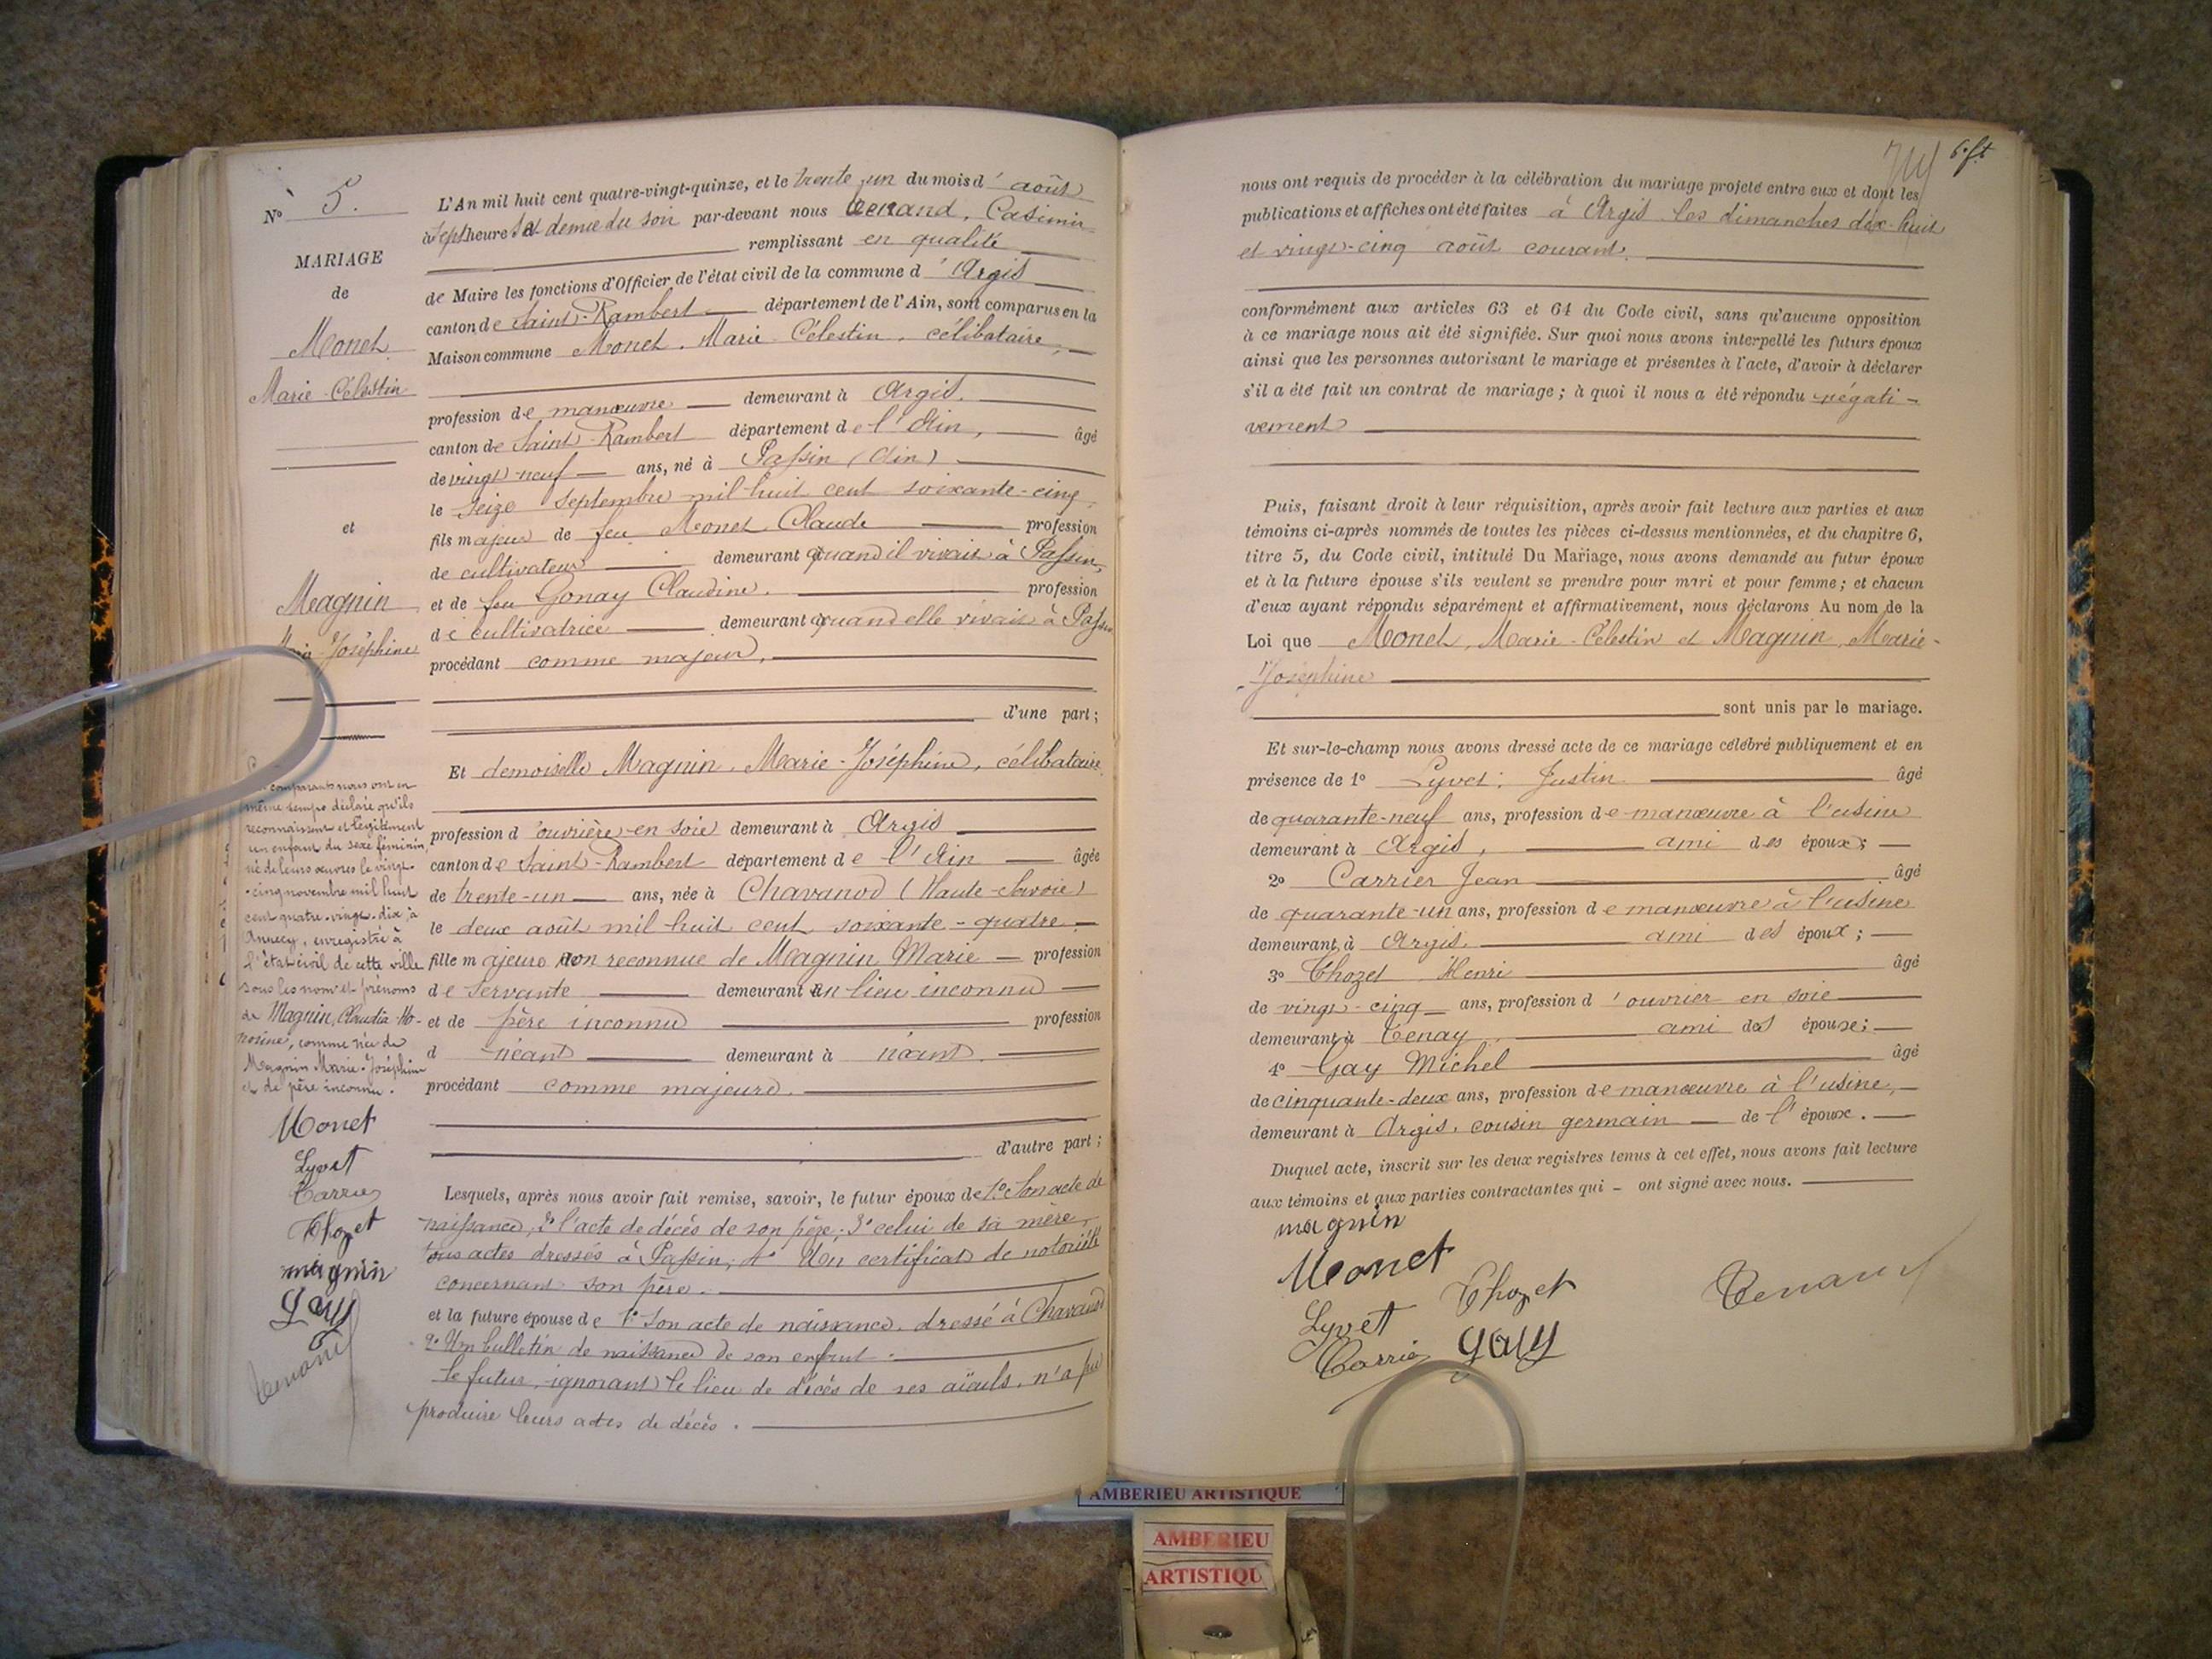 N° 5.
MARIAGE
de
Monet
Marie-Célestin
et
Magnin
Joséphine
comparants nous ont en
même temps déclaré qu'ils
reconnaissent et légitiment
un enfant du sexe féminin,
né de leurs œuvres le vingt-
cinq novembre mil huit
cent quatre-vingt-dix, à
Annecy, enregistré à
l'état civil de cette ville
sous les nom et prénoms
de Magnin, Claudia-Ho-
norine, comme née de
Magnin Marie-Joséphine
et de père inconnu.
Monet
Lyvet
Carrier
Thozet
magnin
Gay
Tenand
L'An mil huit cent quatre-vingt-quinze, et le trente un du mois d'août
à sept heures et demie du soir par-devant nous Tenand, Casimir
remplissant en qualité
de Maire les fonctions d'Officier de l'état civil de la commune d'Argis
canton de Saint-Rambert département de l'Ain, sont comparus en la
Maison commune Monet, Marie-Célestin, célibataire,
profession de manœuvre demeurant à Argis.
canton de Saint-Rambert département de l'Ain, âgé
de vingt-neuf ans, né à Passin (Ain)
le seize septembre mil huit cent soixante-cinq,
fils majeur de feu Monet Claude profession
de cultivateur demeurant quand il vivait à Passin,
et de feu Gonay Claudine. profession
de cultivatrice demeurant quand elle vivait à Passin
procédant comme majeur,
d'une part;
Et demoiselle Magnin, Marie-Joséphine, célibataire
profession d'ouvrière en soie demeurant à Argis
canton de Saint-Rambert département de l'Ain âgée
de trente-un ans, née à Chavanod (Haute-Savoie)
le deux août mil huit cent soixante-quatre
fille majeure non reconnue de Magnin Marie profession
de servante demeurant en lieu inconnu
et de père inconnu profession
d néant demeurant à néant.
procédant comme majeure.
d'autre part;
Lesquels, après nous avoir fait remise, savoir, le futur époux de 1° Son acte de
naissance, 2° l'acte de décès de son père; 3° celui de sa mère,
tous actes dressés à Passin; 4° Un certificat de notoriété
concernant son père.
et la future épouse de 1° Son acte de naissance, dressé à Chavanod
2° Un bulletin de naissance de son enfant.
Le futur, ignorant le lieu de décès de ses aïeuls, n'a pu
produire leurs actes de décès.
nous ont requis de procéder à la célébration du mariage projeté entre eux et dont les
publications et affiches ont été faites à Argis les dimanches dix-huit
et vingt-cinq août courant.
conformément aux articles 63 et 64 du Code civil, sans qu'aucune opposition
à ce mariage nous ait été signifiée. Sur quoi nous avons interpellé les futurs époux
ainsi que les personnes autorisant le mariage et présentes à l'acte, d'avoir à déclarer
s'il a été fait un contrat de mariage; à quoi il nous a été répondu négati-
vement
Puis, faisant droit à leur réquisition, après avoir fait lecture aux parties et aux
témoins ci-après nommés de toutes les pièces ci-dessus mentionnées, et du chapitre 6,
titre 5, du Code civil, intitulé Du Mariage, nous avons demandé au futur époux
et à la future épouse s'ils veulent se prendre pour mari et pour femme; et chacun
d'eux ayant répondu séparément et affirmativement, nous déclarons Au nom de la
Loi que Monet, Marie-Célestin et Magnin, Marie-
Joséphine
sont unis par le mariage.
Et sur-le-champ nous avons dressé acte de ce mariage célébré publiquement et en
présence de 1° Lyvet Justin âgé
de quarante-neuf ans, profession de manœuvre à l'usine
demeurant à Argis, ami des époux;
2° Carrier Jean âgé
de quarante-un ans, profession de manœuvre à l'usine
demeurant à Argis. ami des époux;
3° Thozet Henri âgé
de vingt-cinq ans, profession d'ouvrier en soie
demeurant à Tenay ami des époux;
4° Gay Michel âgé
de cinquante-deux ans, profession de manœuvre à l'usine,
demeurant à Argis, cousin germain de l'époux.
Duquel acte, inscrit sur les deux registres tenus à cet effet, nous avons fait lecture
aux témoins et aux parties contractantes qui ont signé avec nous.
magnin
Monet
Thozet
Tenand
Lyvet
Carrier
GAY
AMBERIEU ARTISTIQUE
AMBERIEU
ARTISTIQU